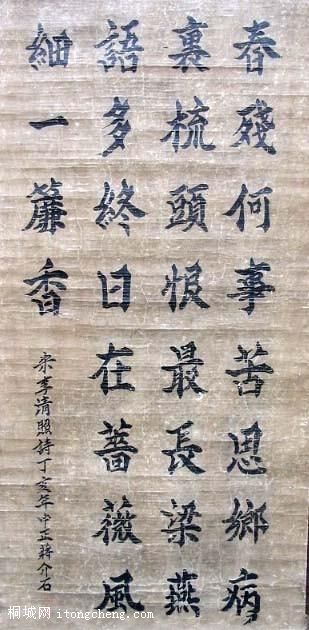 春殘何事苦思鄉病
裏梳頭恨最長梁燕
語多終日在薔薇風
細一簾香
宋李清照詩丁亥年中正蔣介石
桐城网 itongcheng.com